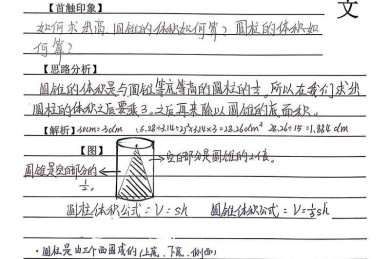 文
【首触印象】
如何求出高,圆锥的体积如何算?圆柱的体积如
何算?
【思路分析】
圆锥的体积是与圆锥等底等高的圆柱的⅓。所以在我们求出
圆柱的体积之后要乘3。之后再来除以圆锥的底面积。
【解析】30cm=3dm (6.28÷3.14÷2)²×3.14×3=28.26dm² 28.26÷15=1.884dm
【图】
空白部分是圆锥的2倍。
圆锥是空白部分的
½。
圆柱体积公式=V=sh 圆锥体积公式:V=⅓sh
·圆柱是由三个面围成的(上底、下底、侧面)